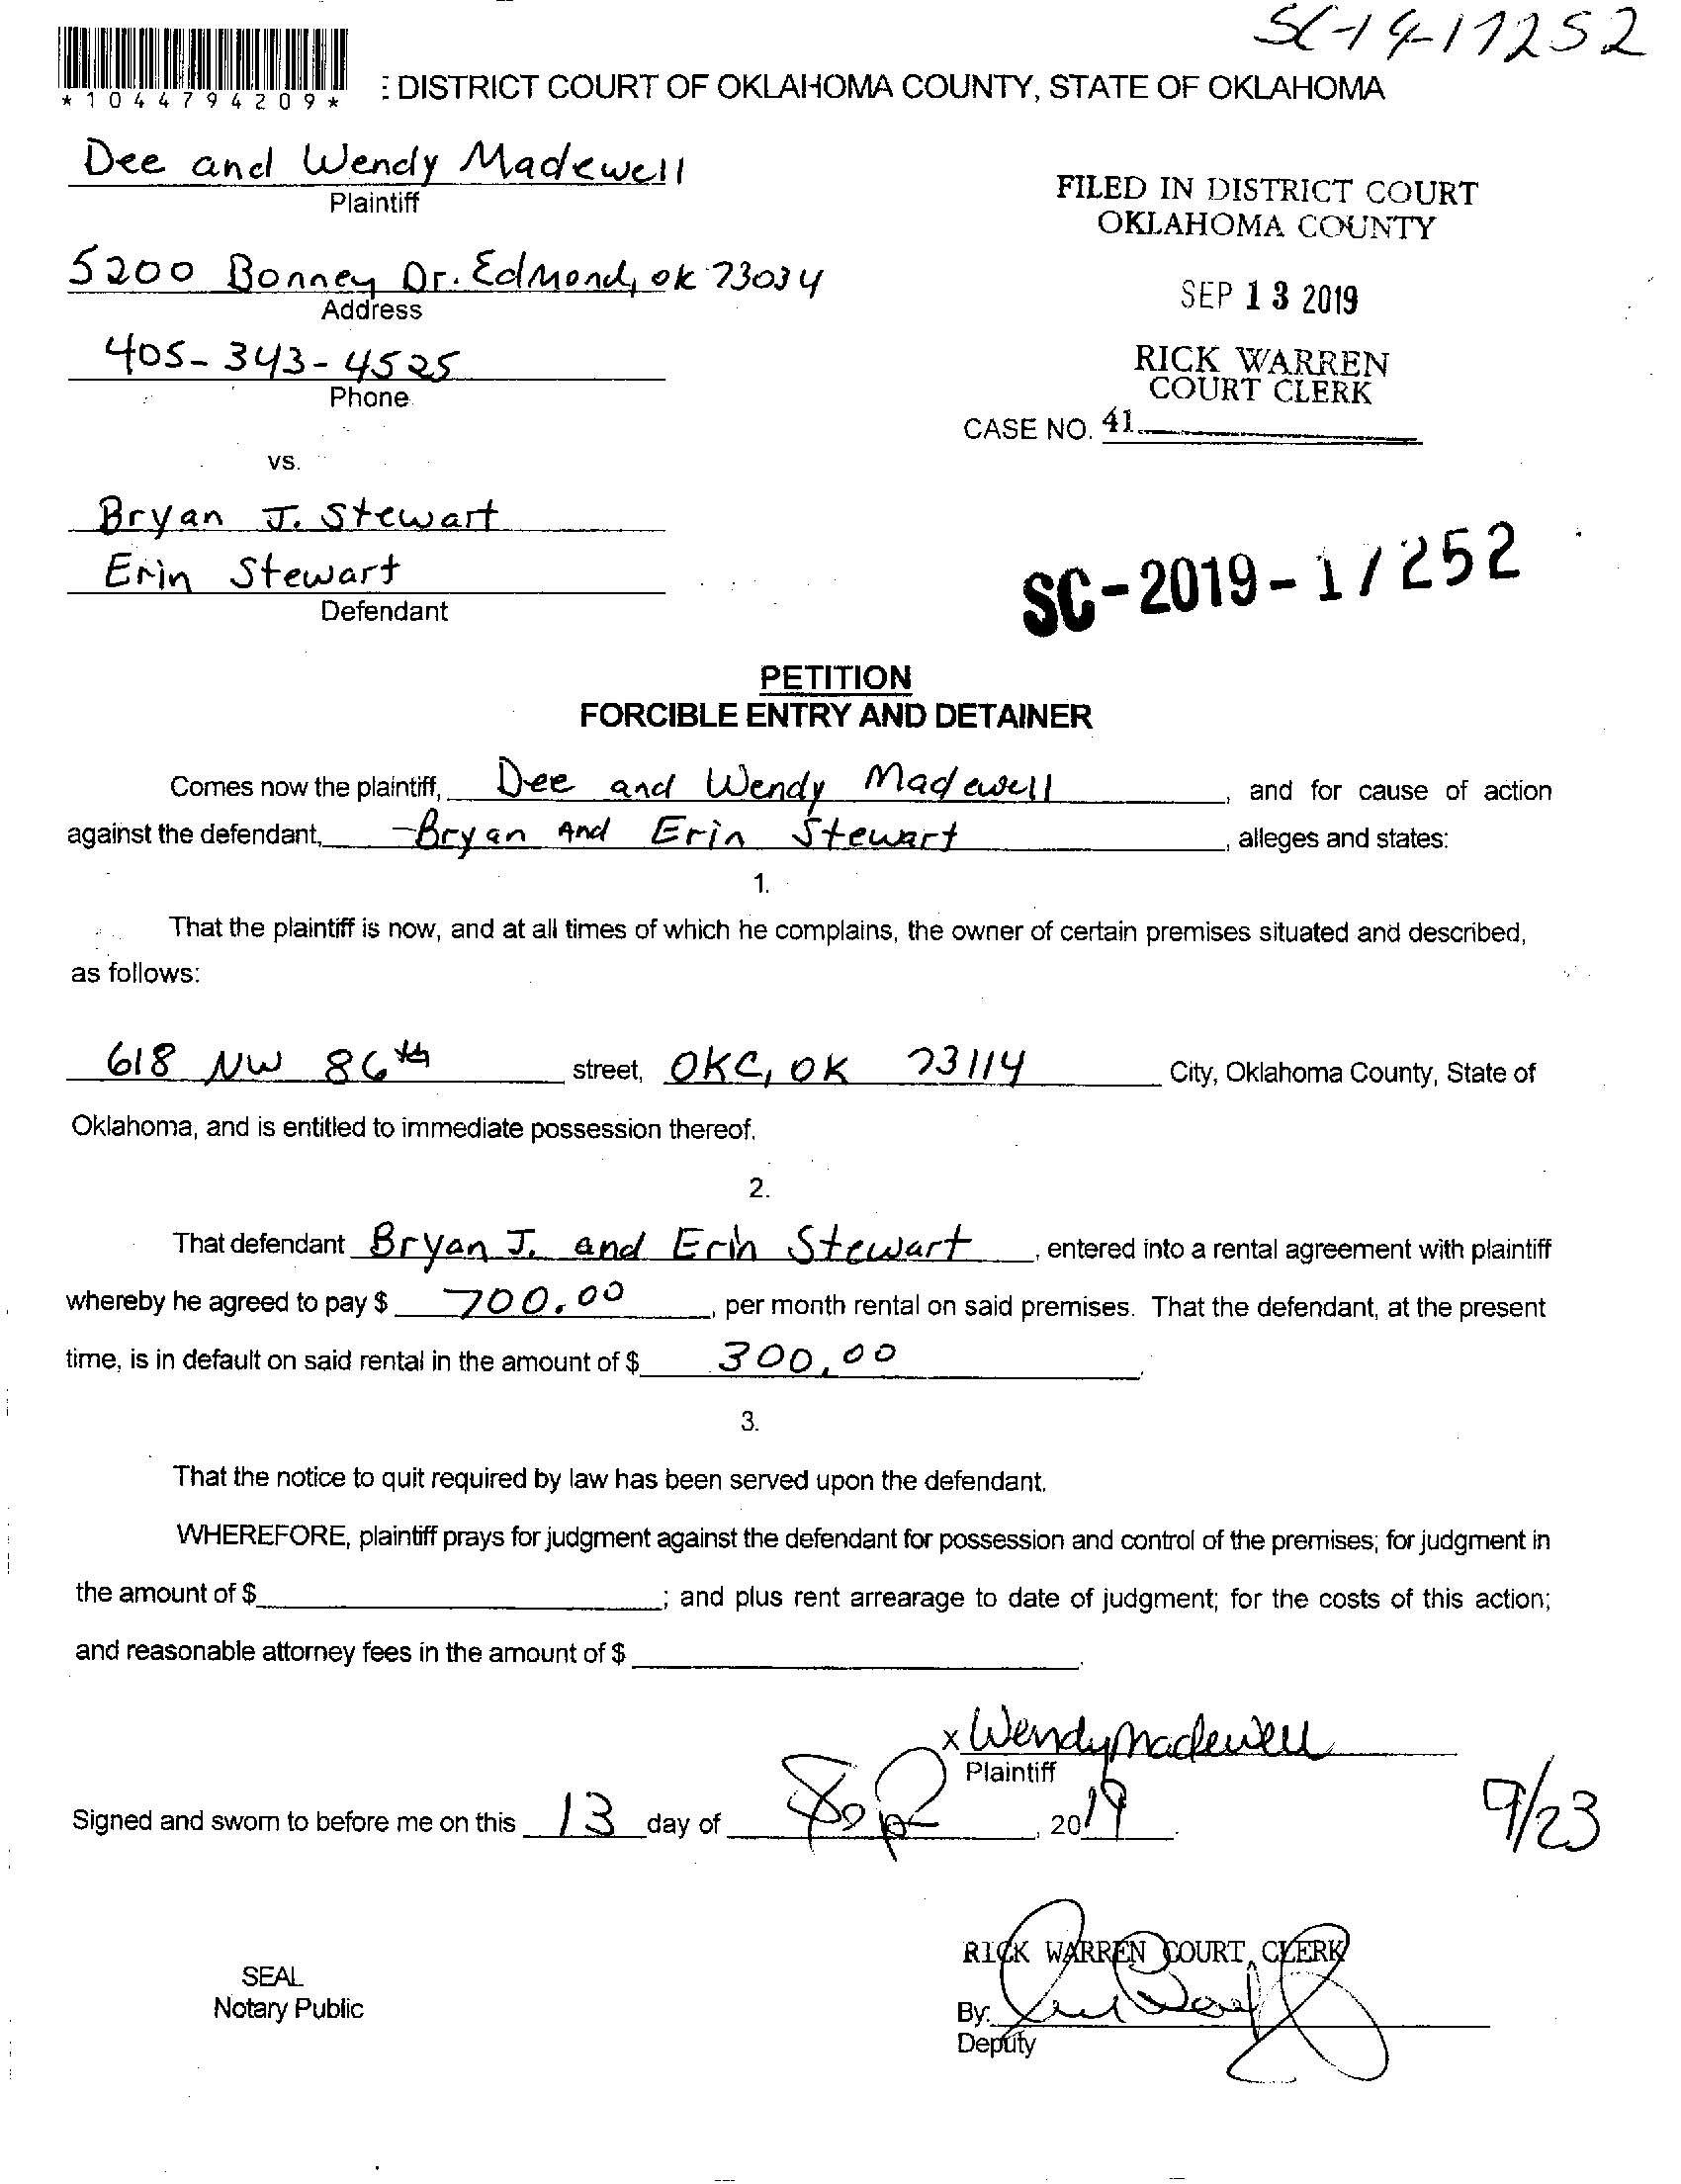 SC-19-17252
*1044794209*
: DISTRICT COURT OF OKLAHOMA COUNTY, STATE OF OKLAHOMA
Dee and Wendy Madewell
Plaintiff
FILED IN DISTRICT COURT
OKLAHOMA COUNTY
5200 Bonney Dr. Edmond, ok 73034
Address
SEP 13 2019
405-343-4525
Phone
RICK WARREN
COURT CLERK
CASE NO. 41
vs.
Bryan J. Stewart
Erin Stewart
Defendant
SC-2019-17252
PETITION
FORCIBLE ENTRY AND DETAINER
Comes now the plaintiff, Dee and Wendy Madewell, and for cause of action
against the defendant, Bryan And Erin Stewart, alleges and states:
1.
That the plaintiff is now, and at all times of which he complains, the owner of certain premises situated and described,
as follows:
618 NW 86th street, OKC, OK 73114 City, Oklahoma County, State of
Oklahoma, and is entitled to immediate possession thereof.
2.
That defendant Bryan J. and Erin Stewart, entered into a rental agreement with plaintiff
whereby he agreed to pay $ 700.00, per month rental on said premises. That the defendant, at the present
time, is in default on said rental in the amount of $ 300.00.
3.
That the notice to quit required by law has been served upon the defendant.
WHEREFORE, plaintiff prays for judgment against the defendant for possession and control of the premises; for judgment in
the amount of $ ; and plus rent arrearage to date of judgment; for the costs of this action;
and reasonable attorney fees in the amount of $ .
x Wendy Madewell
Plaintiff
Signed and sworn to before me on this 13 day of Sep, 2019
9/23
RICK WARREN COURT CLERK
SEAL
Notary Public
By:
Deputy